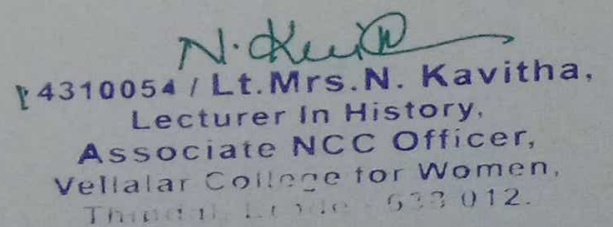 N. Kavi
4310054 / Lt.Mrs.N. Kavitha,
Lecturer In History,
Associate NCC Officer,
Vellalar College for Women,
Thindal, Erode - 638 012.